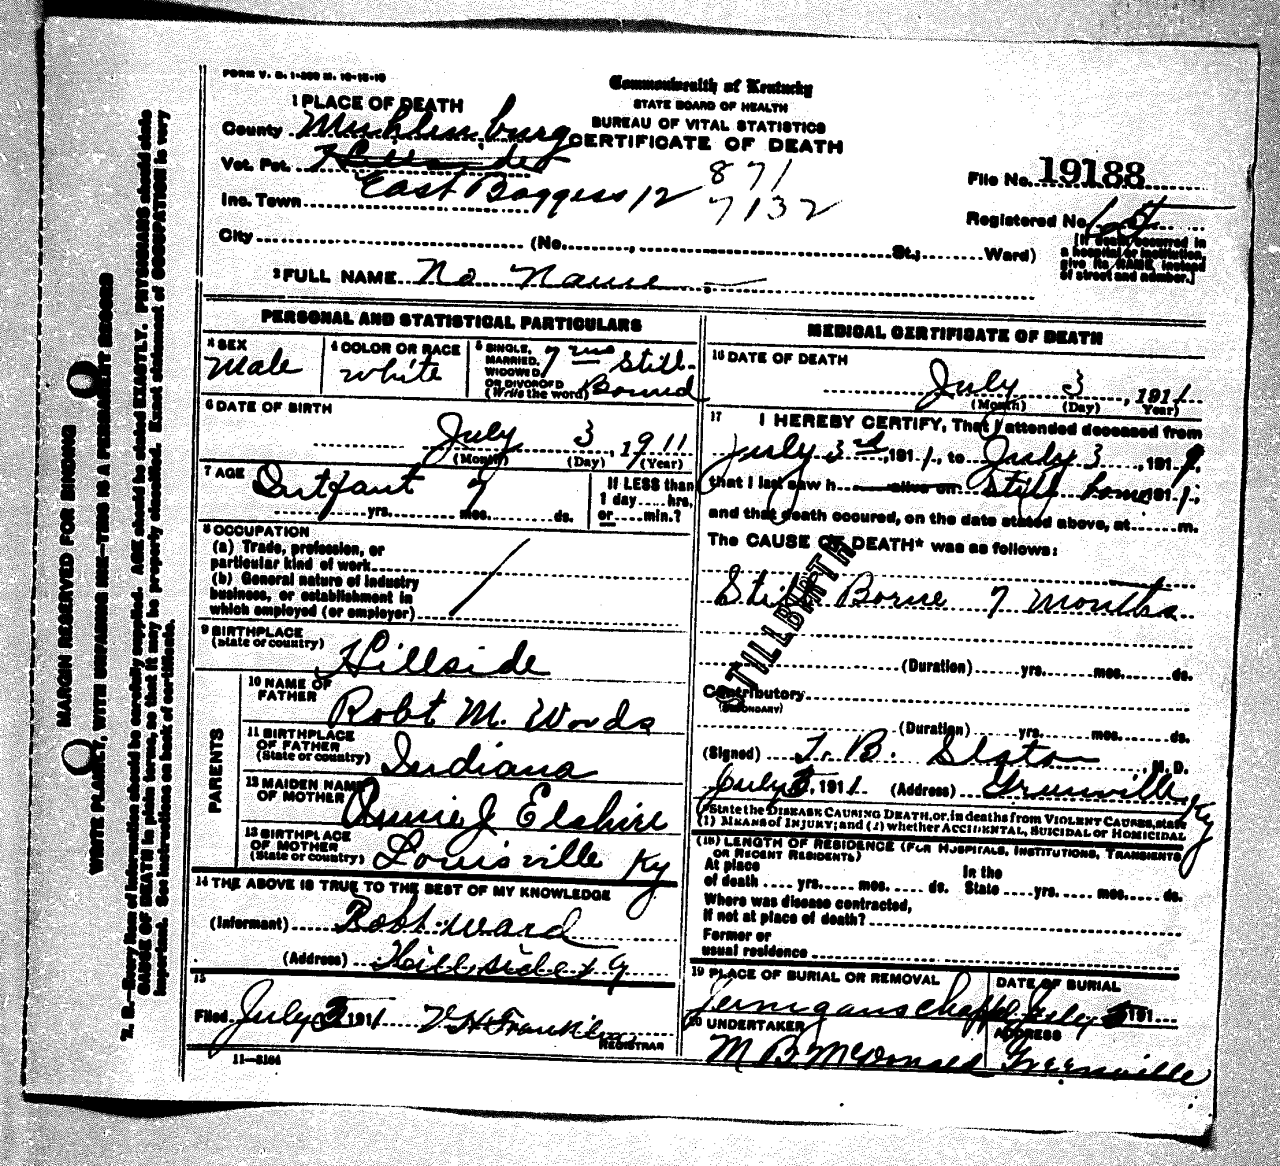 FORM V. S. 1-200 M. 10-15-10
Commonwealth of Kentucky
STATE BOARD OF HEALTH
BUREAU OF VITAL STATISTICS
CERTIFICATE OF DEATH
1 PLACE OF DEATH
County Muhlenburg
Vot. Pct. Hillside
East Boggess 12
871
7132
Inc. Town
City (No., St.; Ward)
File No. 19188
Registered No.
[If death occurred in a hospital or institution, give its NAME instead of street and number.]
2 FULL NAME No Name
PERSONAL AND STATISTICAL PARTICULARS
3 SEX
Male
4 COLOR OR RACE
White
5 SINGLE, MARRIED, WIDOWED, OR DIVORCED (Write the word)
7 mo Still-Borned
6 DATE OF BIRTH
July 3, 1911
(Month) (Day) (Year)
7 AGE
Infant 7
yrs. mos. ds.
If LESS than 1 day hrs. or min.?
8 OCCUPATION
(a) Trade, profession, or particular kind of work
(b) General nature of industry business, or establishment in which employed (or employer)
9 BIRTHPLACE
(State or country) Hillside
PARENTS
10 NAME OF FATHER Robt M. Words
11 BIRTHPLACE OF FATHER
(State or country) Indiana
12 MAIDEN NAME OF MOTHER Annie J Elshire
13 BIRTHPLACE OF MOTHER
(State or country) Louisville Ky
14 THE ABOVE IS TRUE TO THE BEST OF MY KNOWLEDGE
(Informant) Robt Ward
(Address) Hillside Ky
15
Filed July 3 1911 V H Franklin
REGISTRAR
11-8164
MEDICAL CERTIFICATE OF DEATH
16 DATE OF DEATH
July 3, 1911
(Month) (Day) Year)
17 I HEREBY CERTIFY, That I attended deceased from
July 3rd, 1911, to July 3, 191
that I last saw h alive on still borne 1911,
and that death occured, on the date stated above, at m.
The CAUSE OF DEATH* was as follows:
Still Borne 7 Months
STILLBIRTH
(Duration) yrs. mos. ds.
Contributory
(SECONDARY)
(Duration) yrs. mos. ds.
(Signed) T. B. Slaton, M. D.
July 3, 1911 (Address) Grunville Ky
*State the DISEASE CAUSING DEATH, or, in deaths from VIOLENT CAUSES, state
(1) MEANS of INJURY; and (2) whether ACCIDENTAL, SUICIDAL or HOMICIDAL
(18) LENGTH OF RESIDENCE (FOR HOSPITALS, INSTITUTIONS, TRANSIENTS OR RECENT RESIDENTS)
At place of death yrs. mos. ds. In the State yrs. mos. ds.
Where was disease contracted,
If not at place of death?
Former or
usual residence
19 PLACE OF BURIAL OR REMOVAL
Jernigans Chappel
DATE OF BURIAL
July 3 191
20 UNDERTAKER
M B McDonald
ADDRESS
Greenville
MARGIN RESERVED FOR BINDING
WRITE PLAINLY, WITH UNFADING INK—THIS IS A PERMANENT RECORD
N. B.—Every item of information should be carefully supplied. AGE should be stated EXACTLY. PHYSICIANS should state
CAUSE OF DEATH in plain terms, so that it may be properly classified. Exact statement of OCCUPATION is very
important. See instructions on back of certificate.